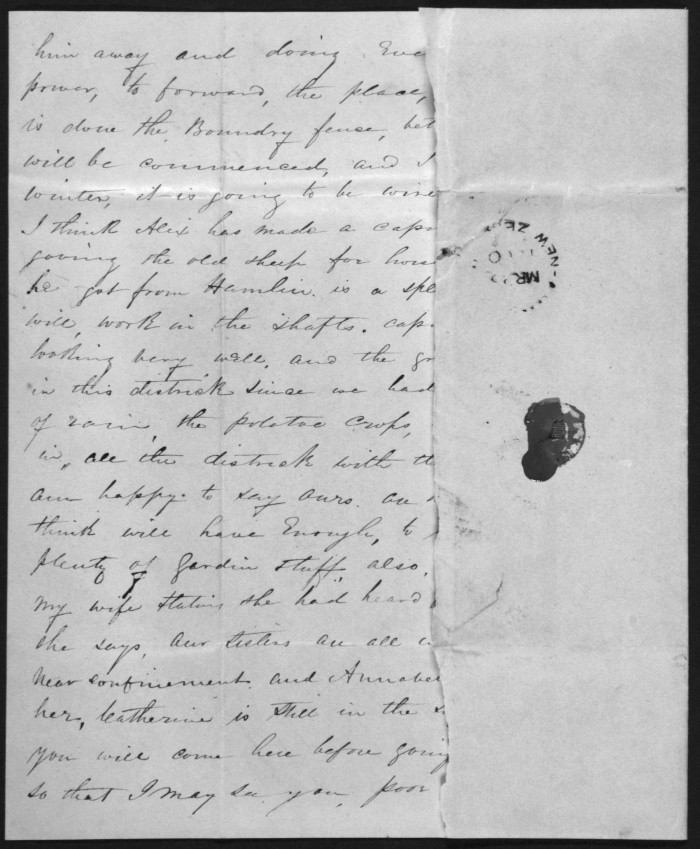 him away and doing Eve
power, to forward, the place,
is done the Boundry fence, bet
will be commenced, and I
winter, it is going to be wire
I think Alix has made a cap
the old sheep for
he got from Hamlin is a spl
will, work in the shafts. cap
looking very well, and the gr
in this districk since we had
of rain, the potatoe Crops,
in, all the districk with th
am happy to say ours. are
think will have Enough, to
plenty of Gardin stuff, also.
My wife stating she had heard
she says, our sisters are all
Near confinement. and Annabel
her, Catherine is still in the
you will come here before going
so that I may see you, poor
NEW ZE
MR